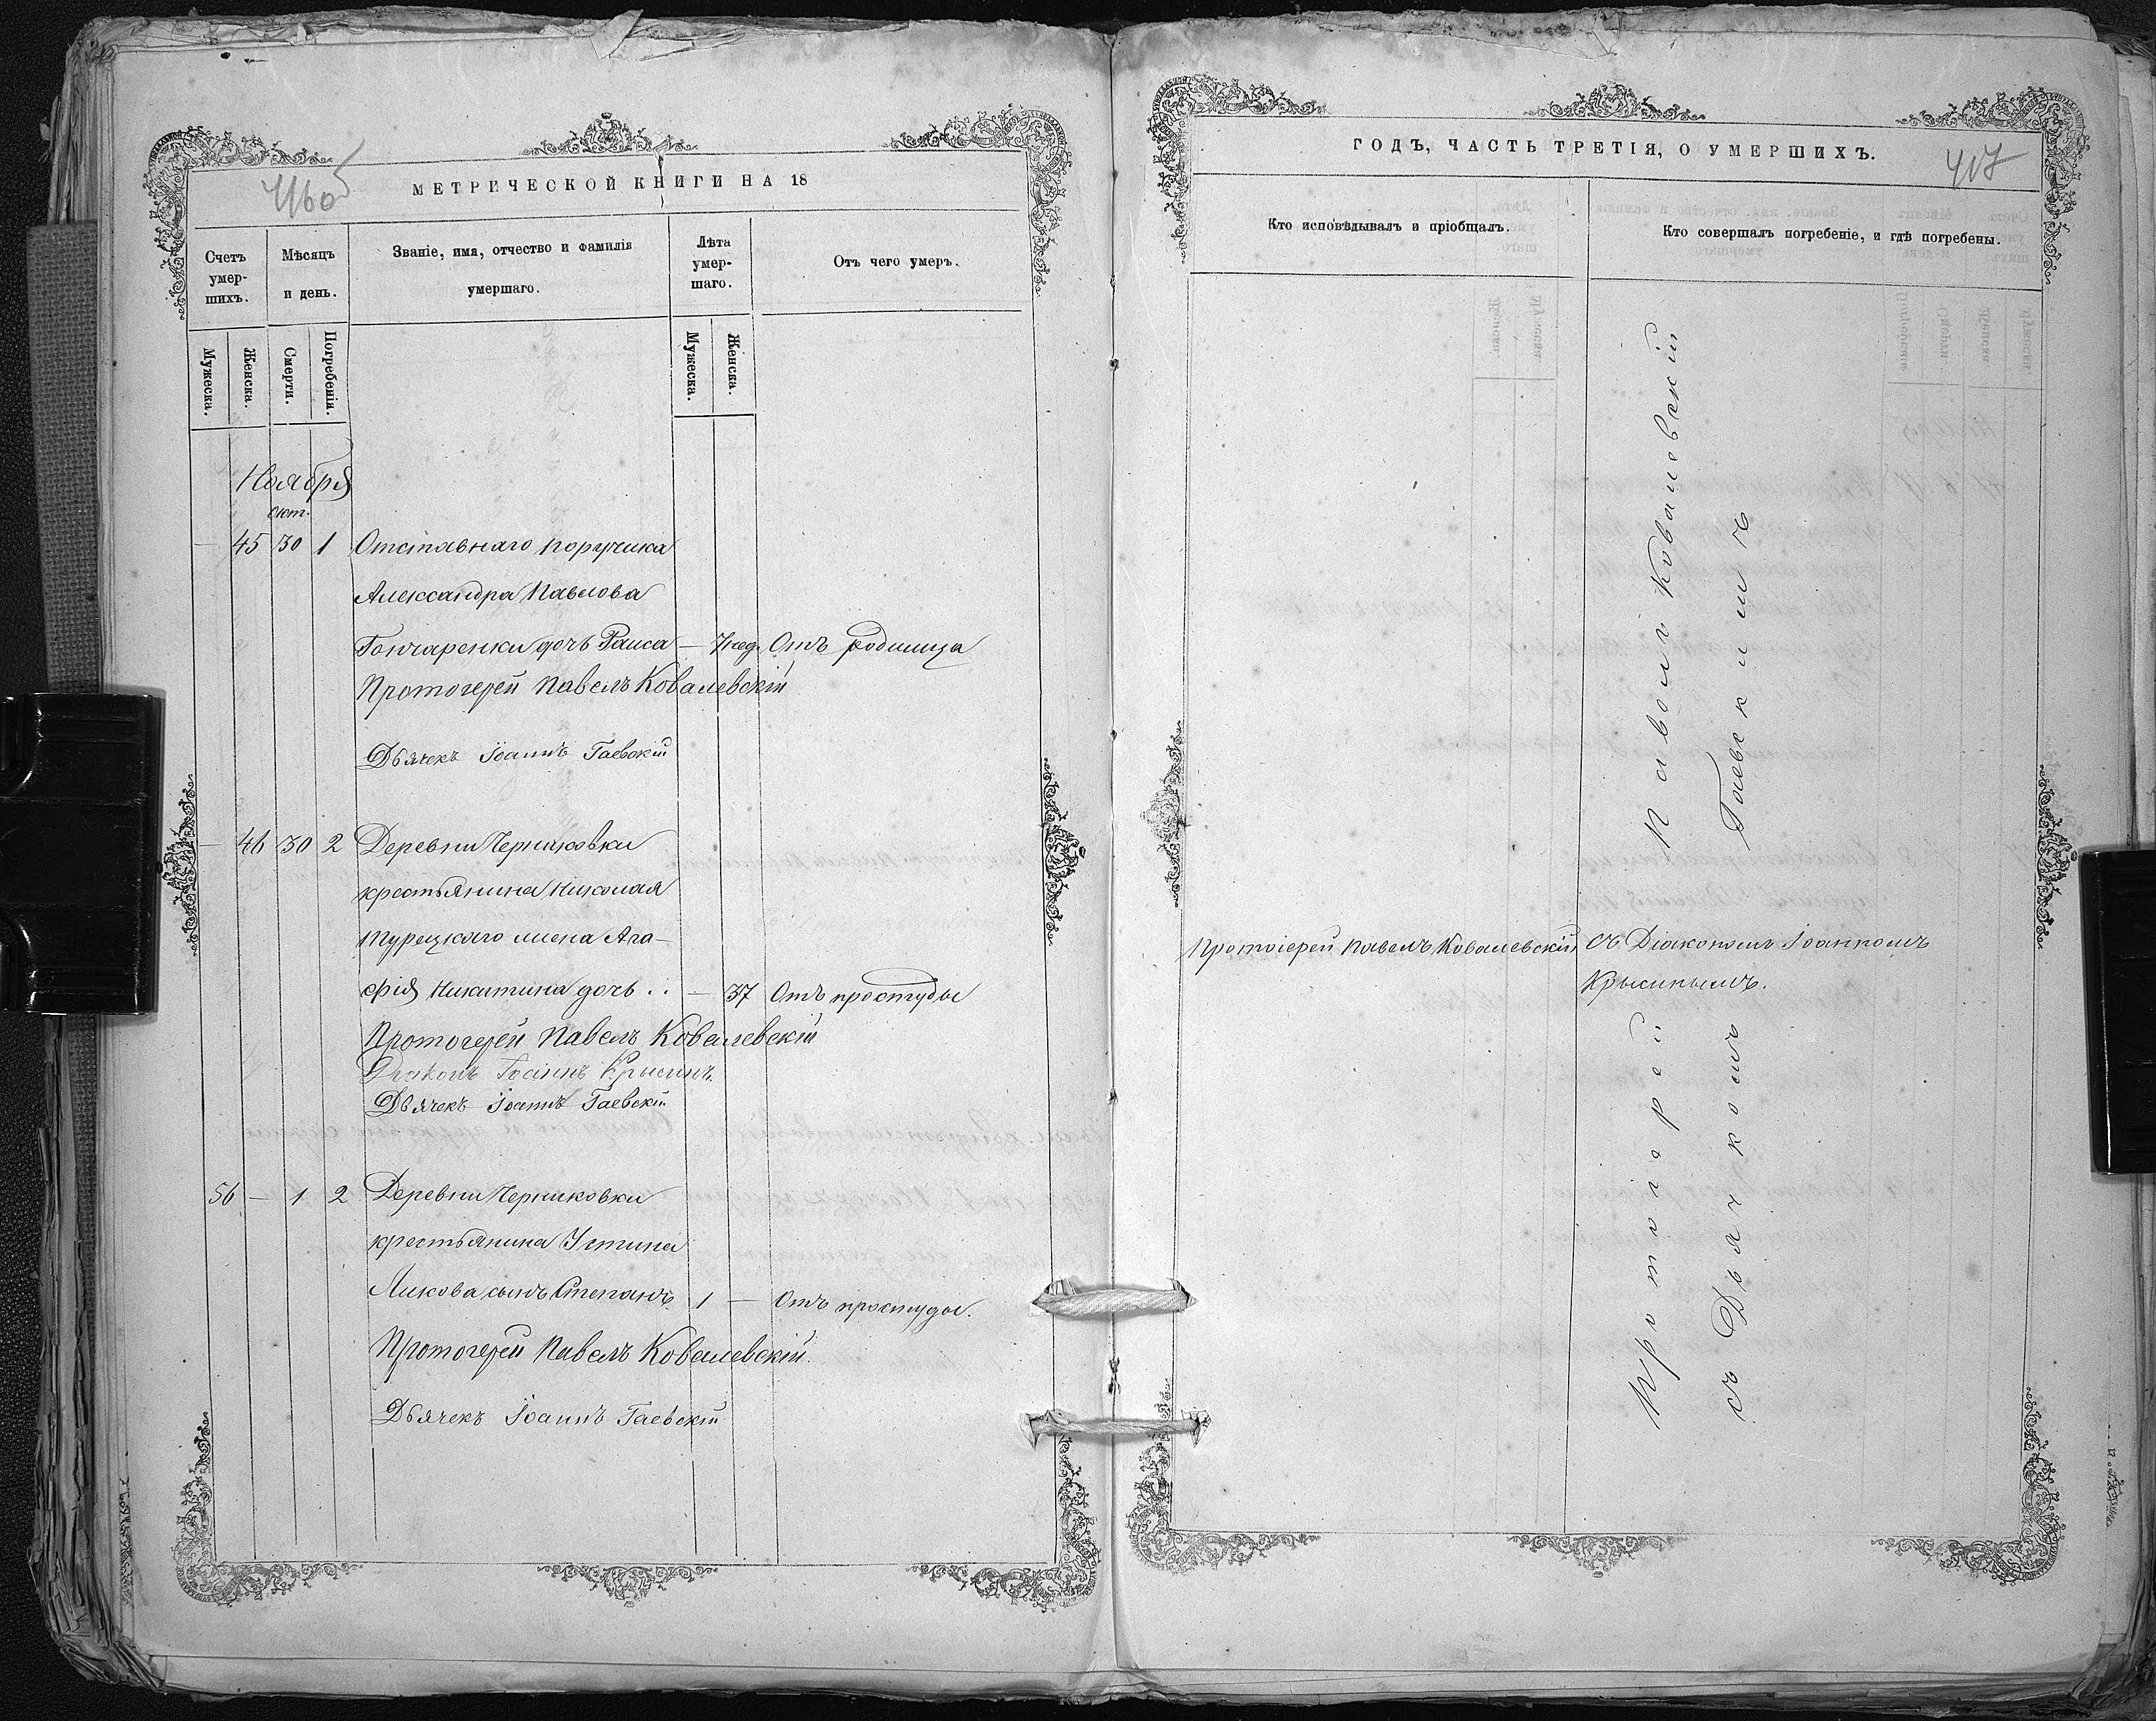 МЕТРИЧЕСКОЙ КНИГИ НА 18
Счетъ умер-шихъ.
Мѣсяцъ и день.
Званіе, имя, отчество и фамилія умершаго.
Лѣта умер-шаго.
Отъ чего умеръ.
Мужеска.
Женска.
Смерти.
Погребенія.
Мужеска.
Женска.
Ноября
окт.
— 45 30 1 Отставнаго поручика
Александра Павлова
Гончаренки дочь Раиса — 7 нед. Отъ родимца
Протоіерей Павелъ Ковалевскій
Дьячекъ Іоаннъ Гаевскій
— 46 30 2 Деревни Черниковки
крестьянина Николая
Турецкаго жена Ага-
фія Никитина дочь .. — 37 Отъ простуды
Протоіерей Павелъ Ковалевскій
Діаконъ Іоаннъ Крысинъ.
Дьячекъ Іоаннъ Гаевскій
56 — 1 2 Деревни Черниковки
крестьянина Устина
Ликова сынъ Степанъ 1 — Отъ простуды.
Протоіерей Павелъ Ковалевскій.
Дьячекъ Іоаннъ Гаевскій
ГОДЪ, ЧАСТЬ ТРЕТІЯ, О УМЕРШИХЪ.
407
Кто исповѣдывалъ и пріобщалъ.
Кто совершалъ погребеніе, и гдѣ погребены.
Протоіерей Павелъ Ковалевскій
съ Діакономъ Іоанномъ
Крысинымъ.
Протоіерей Павелъ Ковалевскій
съ Дьячкомъ Гаевскимъ